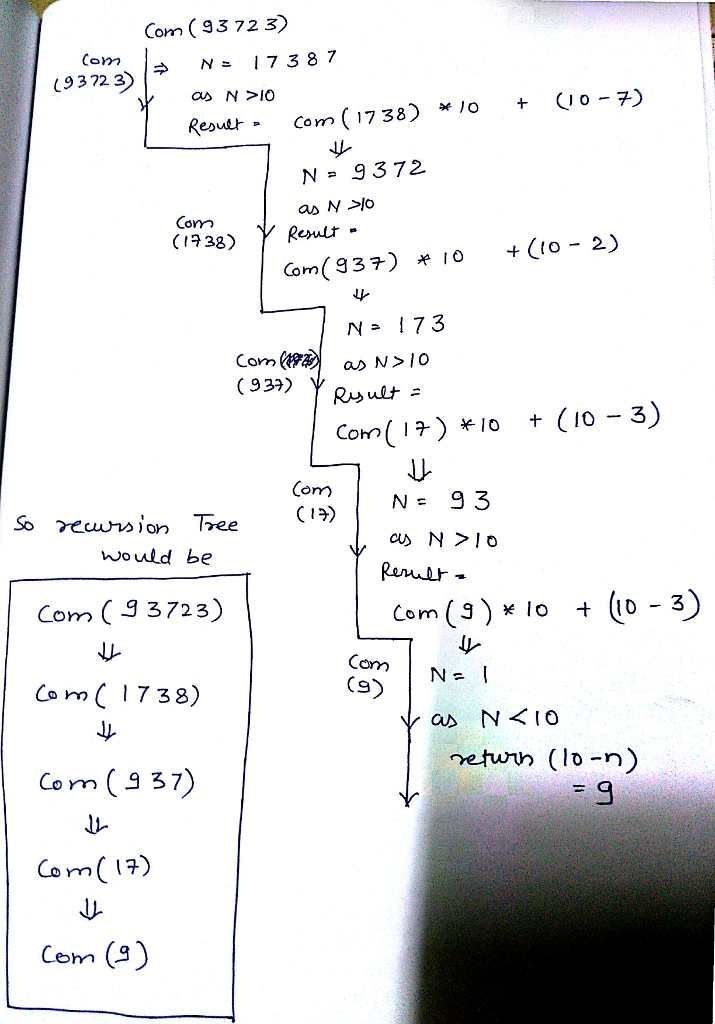 Com (93723)
Com
(93723)
⇒ N = 17387
as N >10
Result = com (1738) * 10 + (10 - 7)
⇓
N = 9372
as N >10
Com
(1738)
Result =
Com(937) * 10 + (10 - 2)
⇓
N = 173
Com
(937)
as N>10
Result =
Com(17) * 10 + (10 - 3)
⇓
Com
(17)
N = 93
as N >10
Result =
Com (9) * 10 + (10 - 3)
⇓
Com
(9)
N = 1
as N <10
return (10-n)
= 9
So recursion Tree
would be
Com (93723)
⇓
Com( 1738)
⇓
Com (937)
⇓
Com(17)
⇓
Com (9)